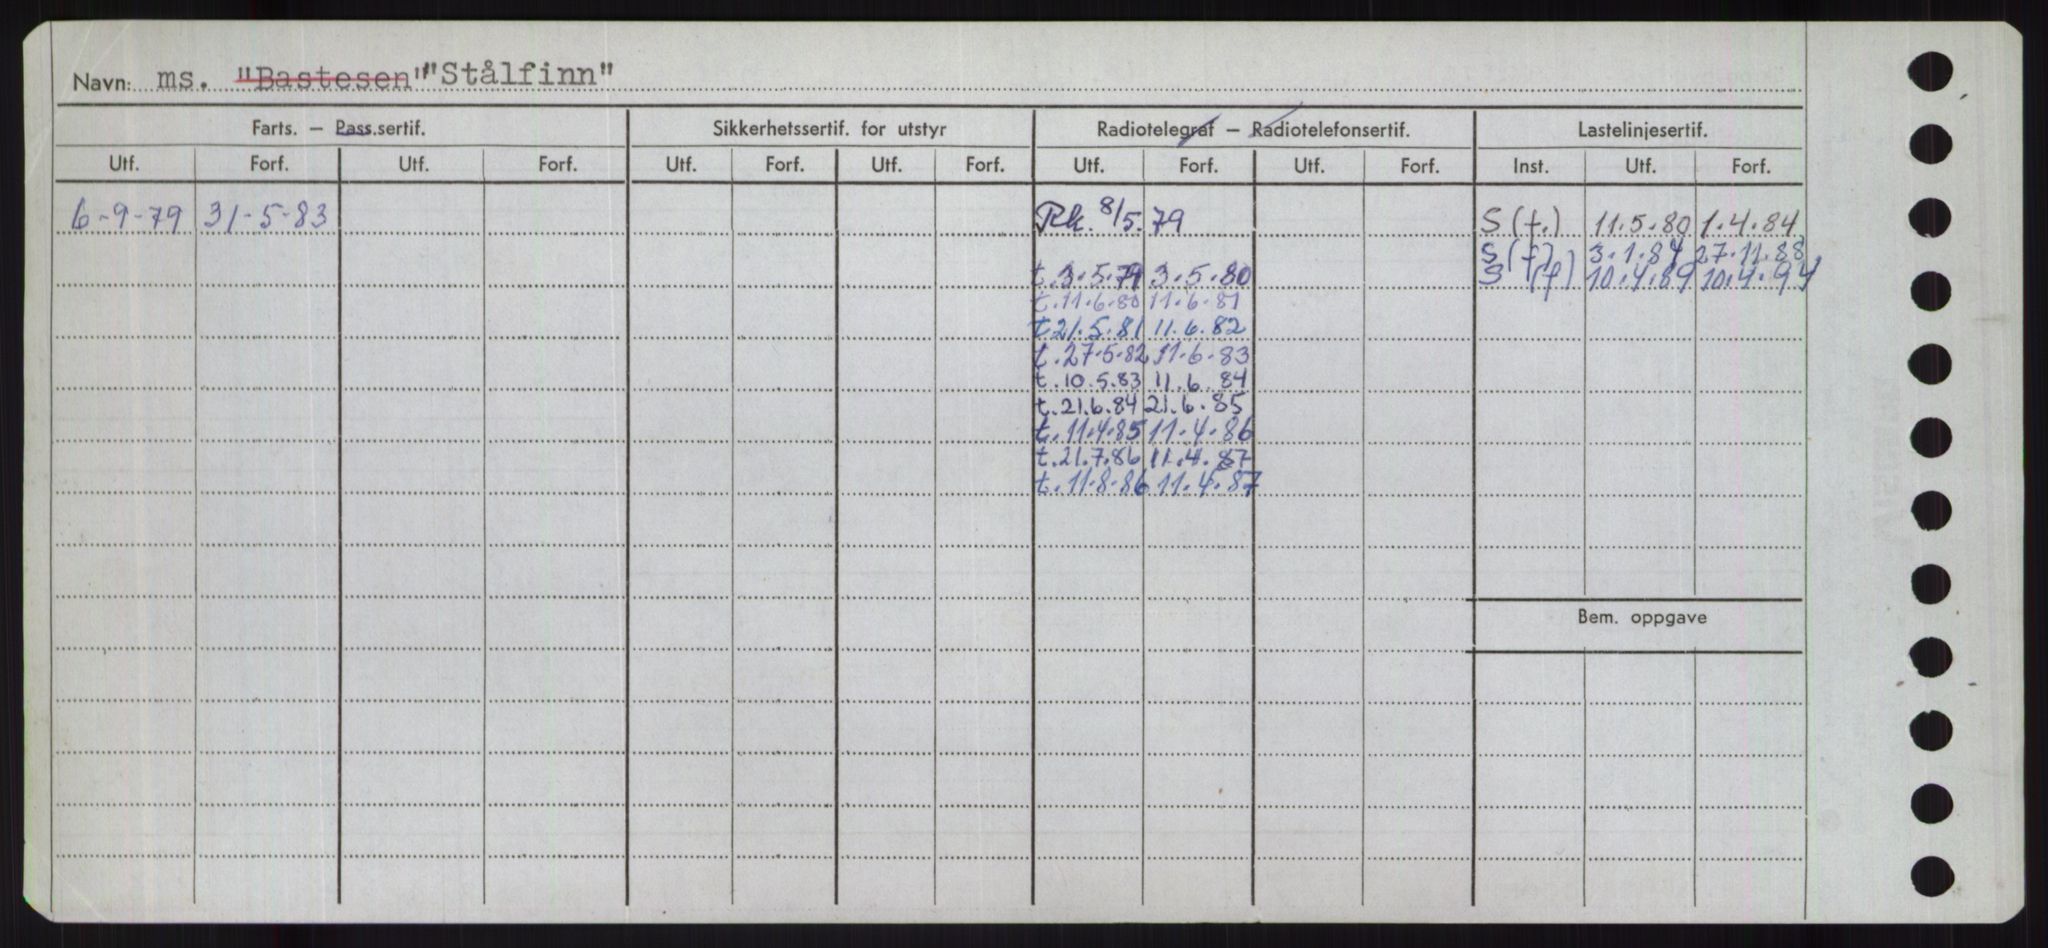 Navn: ms. "Bastesen" "Stålfinn"
Farts. — Pass.sertif. Sikkerhetssertif. for utstyr Radiotelegraf — Radiotelefonsertif. Lastelinjesertif.
Utf. Forf. Utf. Forf. Utf. Forf. Utf. Forf. Utf. Forf. Utf. Forf. Inst. Utf. Forf.
6-9-79 31-5-83 Rk. 8/5.79 S (f.) 11.5.80 1.4.84
S (f) 3.1.84 27.11.88
t.3.5.79 3.5.80 S (f) 10.4.89 10.4.94
t.11.6.80 11.6.81
t.21.5.81 11.6.82
t.27.5.82 11.6.83
t.10.5.83 11.6.84
t.21.6.84 21.6.85
t.11.4.85 11.4.86
t.21.7.86 11.4.87
t.11.8.86 11.4.87
Bem. oppgave